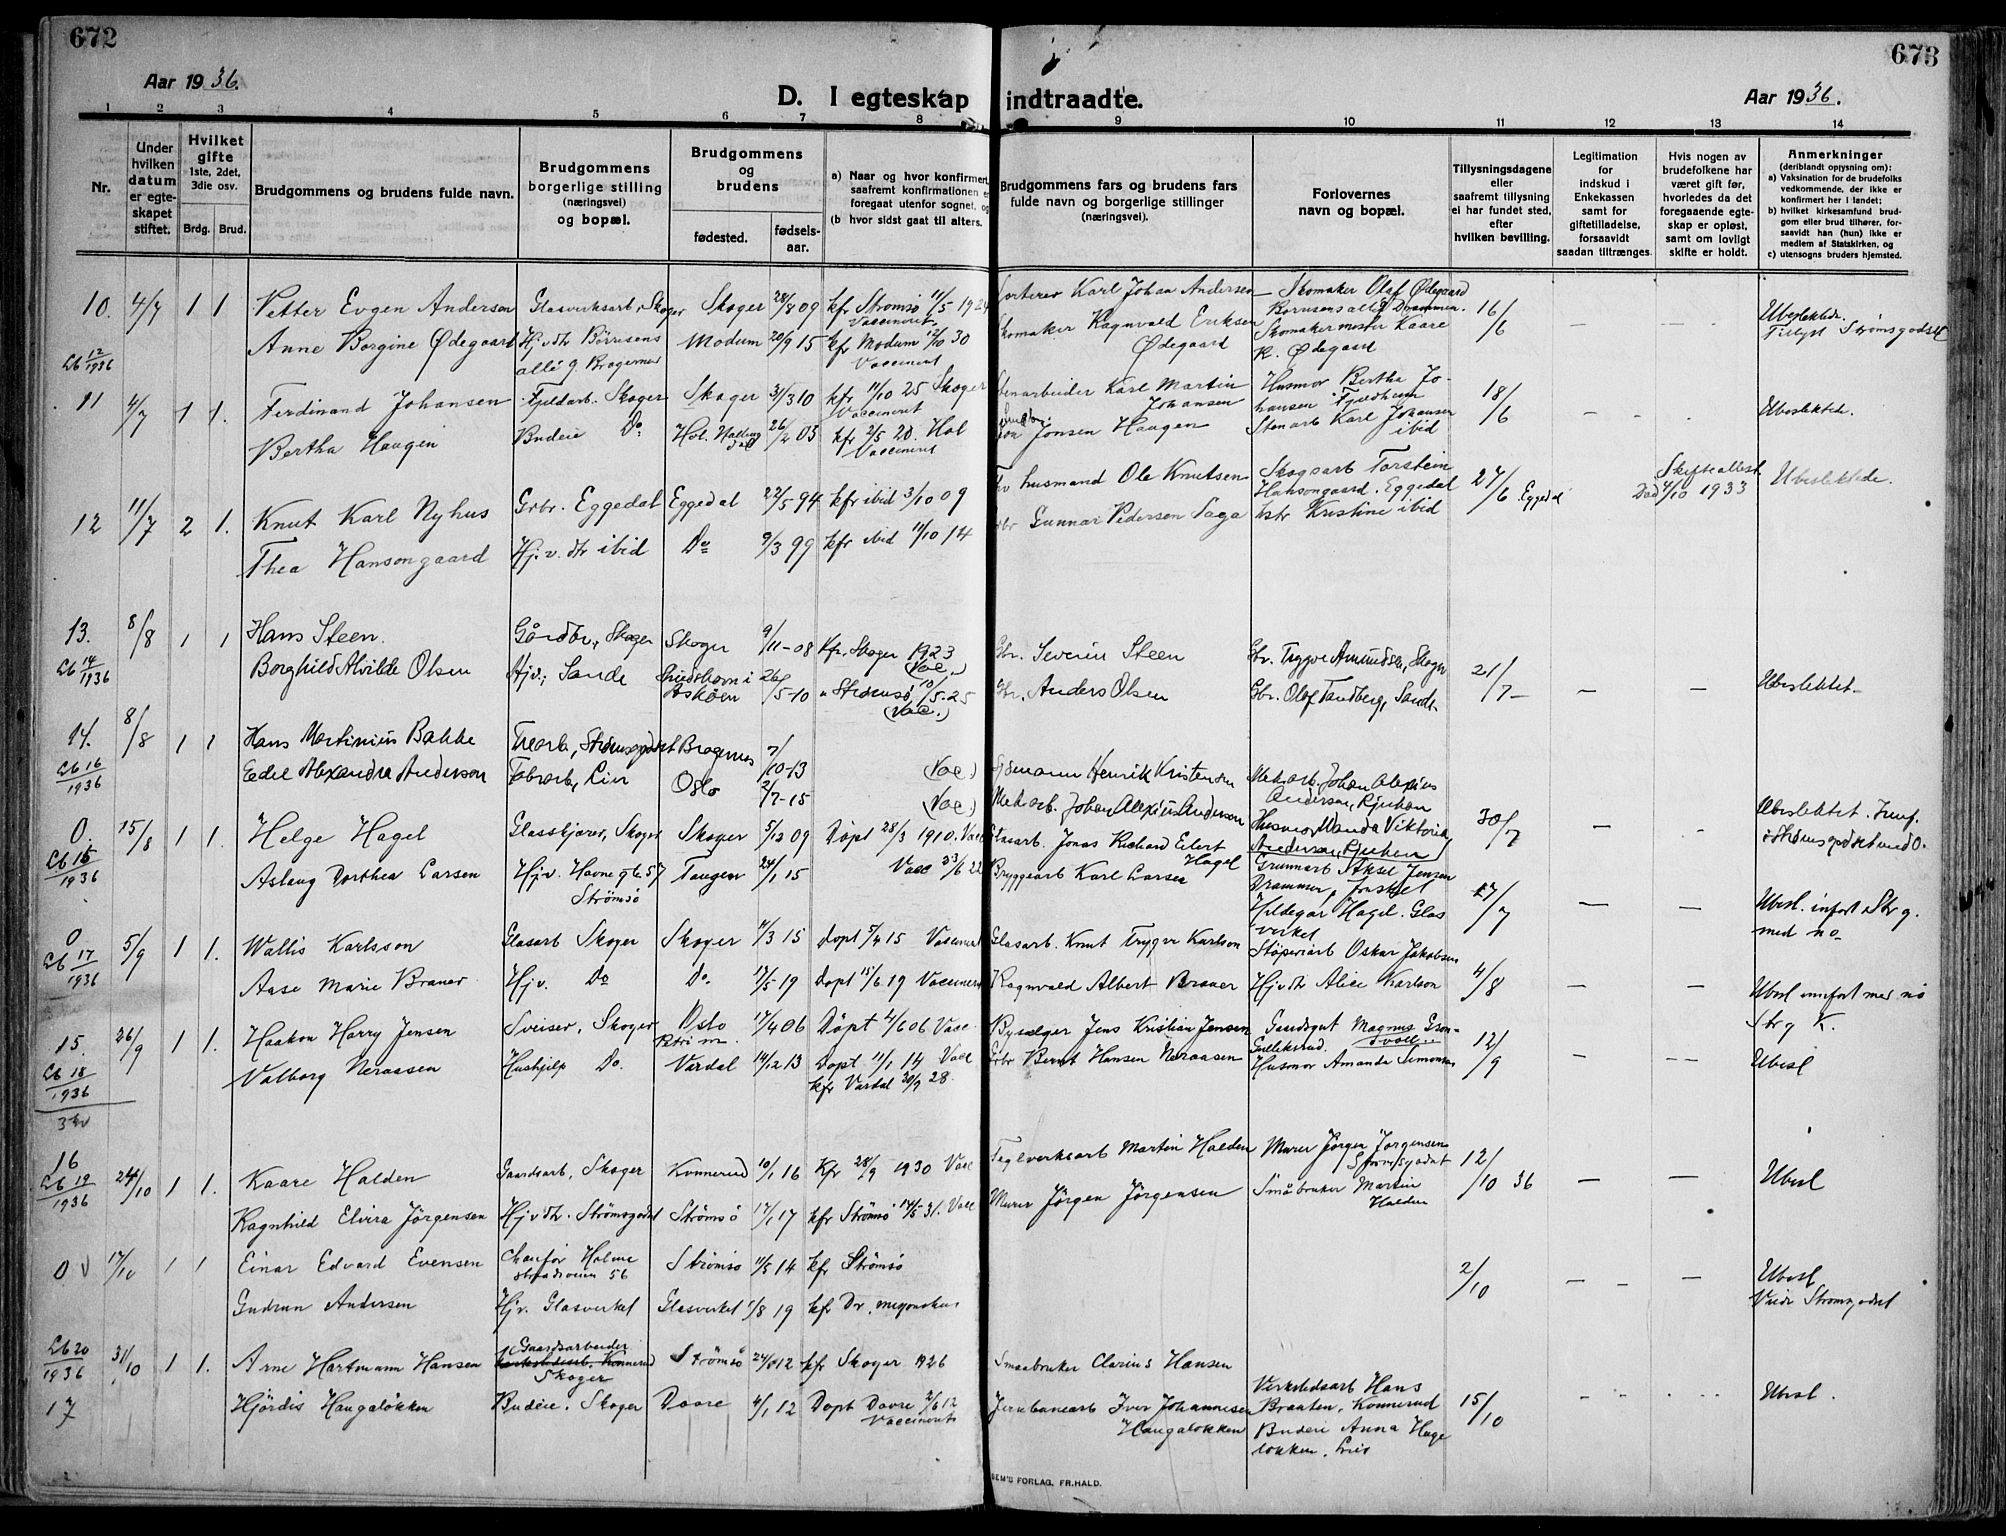 672
673
Aar 1936.
D. I egteskap indtraadte.
Aar 1936.
1 2 3 4 5 6 7 8 9 10 11 12 13 14
Nr.
Under hvilken datum er egteskapet stiftet.
Hvilket gifte 1ste, 2det, 3die osv.
Brdg. Brud.
Brudgommens og brudens fulde navn.
Brudgommens borgerlige stilling (næringsvei) og bopæl.
Brudgommens og brudens
fødested. fødselsaar.
a) Naar og hvor konfirmert, saafremt konfirmationen er foregaat utenfor sognet, og
(b hvor sidst gaat til alters.
Brudgommens fars og brudens fars fulde navn og borgerlige stillinger (næringsvei).
Forlovernes navn og bopæl.
Tillysningsdagene eller saafremt tillysning ei har fundet sted, efter hvilken bevilling.
Legitimation for indskud i Enkekassen samt for giftetilladelse, forsaavidt saadan tiltrænges.
Hvis nogen av brudefolkene har været gift før, hvorledes da det foregaaende egteskap er opløst, samt om lovlig skifte er holdt.
Anmerkninger (deriblandt opysning om): a) Vaksination for de brudefolks vedkommende, der ikke er konfirmert her i landet; b) hvilket kirkesamfund brudgom eller brud tilhører, forsaavidt han (hun) ikke er medlem af Statskirken, og c) utensogns bruders hjemsted.
10. 4/7 1 1 Petter Evgen Andersen Glasverksarb. Skoger Skoger 28/8 09 kfr Strømsø 11/5 1924 Vaccinert. Karl Johan Andersen Skomaker Olaf Ødegaard 16/6 – – – Ubeslektede.
Lb 12/1936 Anne Borgine Ødegaard Hj.v. dtr Børresens alle 9 Bragernes Modum 20/9 15 kfr Modum 12/10 30 Vaccinert Skomaker Ragnvald Eriksen Ødegaard Skomakermester Kaare R. Ødegaard Tillyst Strømsgodset
11 4/7 1 1. Ferdinand Johansen Fjeldarb. Skoger Skoger 31/3 10 kfr 11/10 25 Skoger Vaccinert Stenarbeider Karl Martin Johansen Husmor Bertha Johansen Fjeldheim 18/6 Ubeslektede.
Bertha Haugen Budeie Do Hol. Hallingdal 26/2 03 kfr 2/5 20. Hol Vaccinert Jonsen Haugen Stenarb Karl Johansen ibid
12 11/7 2 1. Knut Karl Nyhus Grbr. Eggedal Eggedal 22/5 94 kfr ibid 3/10 09 husmand Ole Knutsen Skogsarb Torstein Hansongaard. Eggedal 27/6 Eggedal Skifteattest Død 4/10 1933 Ubeslektede.
Thea Hansongaard Hj. v. dtr ibid Do 9/3 99 kfr ibid 11/10 14 Gunnar Pedersen Saga hstr Kristine ibid
13. 8/8 1 1 Hans Steen. Gårdbr., Skoger Skoger 9/11-08 Kfr. Skoger 1923 (Vac.) Gbr. Severin Steen Gbr. Trygve Amundsen, Skoger 21/7 – – – Ubeslektet
Lb 14/1936 Borghild Alvilde Olsen Hjv., Sande Askøen 26/5-10 " Strømsø 10/5-25 (Vac.) Gbr. Anders Olsen Gbr. Olaf Tandberg, Sande
14. 8/8 1 1 Hans Martinius Bakke Strømsgodset Bragernes 7/10-13 (Vac.) Sjømann Henrik Kristensen Mek.arb. Johan Alexius Andersen, Rjukan 30/7 – – Ubeslektet. Innf. i Strømsgodset
Lb 16/1936 Edel Alexandra Anderson Fabrarb, Lier Oslo 2/7-15 (Vac.) Mek.arb. Johan Alexius Anderson Husmor Wanda Viktoria Anderson, Rjukan
0. 15/8 1 1. Helge Hagel Glasskjærer, Skoger Skoger 5/12 09 Døpt 28/3 1910. Vacc Glasarb. Jonas Richard Eilert Hagel Aksel Jensen Drammen 17/7 – – Ubesl. innført Strg. med no
Lb 15/1936 Aslaug Dorthea Larsen Hjv. Havnegt. 57 Strømsø Tangen 24/1 15 Vacc 23/6 22 Bryggearb Karl Larsen Hildegar Hagel. Glasverket
0 5/9 1 1. Wallis Karlsson Glasarb Skoger Skoger 11/3 15 Døpt 5/4 15 Vaccinert Glasarb. Knut Trygve Karlson Støperiarb Oskar Jakobsen 4/8 – – Ubesl innført med no
Lb 17/1936 Aase Marie Braner Hjv. Do Do. 17/5 19 Døpt 15/6 19 Vaccinert Ragnvald Albert Braner Hjv dtr Alice Karlson Strg K.
15. 26/9 1 1. Haakon Harry Jensen Sveiser, Skoger Oslo 17/4 06 Døpt 4/6 06 Vacc. Jens Kristian Jensen Gaardsgut Magnus 12/9 – – Ubesl
Lb 18/1936 Valborg Neraasen Hushjelp Do. Vardal 14/12 13 Døpt 11/1 14 Vacc kfr Vardal 30/9 28. Grbr Bernt Hansen Neraasen Husmor Amanda Simonsen
16 24/10 1 1. Kaare Halden Gaardsarb, Skoger Konnerud 10/1 16 Kfr 28/9 1930 Vacc Teglverksarb Martin Halden Murer Jørgen Jørgensen Strømsgodset 12/10 36 – – Ubesl
Lb 19/1936 Ragnhild Elvira Jørgensen Hjv dtr. Strømsgodset Strømsø 17/1 17 kfr Strømsø 14/5 31. Vacc Murer Jørgen Jørgensen Småbruker Martin Halden
0 17/10 1 1 Einar Edvard Evensen Chaufør 56 Strømsø 11/5 14 kfr Strømsø 2/10 – – – Ubesl
Gudrun Andersen Hjv. Glasverket Glasverket 1/8 19 kfr Dr. Viede Strømsgodset
Lb 20/1936 31/10 1 1. Arne Hartmann Hansen Gaardsarbeider Skoger Strømsø 12 kfr Skoger 1926 Smaabruker Clarins Hansen Verkstedsarb Hans Braaten, Konnerud 15/10 Ubesl.
17 Hjørdis Haugaløkken Budeie. Skoger Dovre 4/1 12 Døpt Dovre 2/6 12 Vaccinert Jernbanearb Iver Johannesen Haugaløkken Budeie Anna
SEM'S FORLAG, FR.HALD.